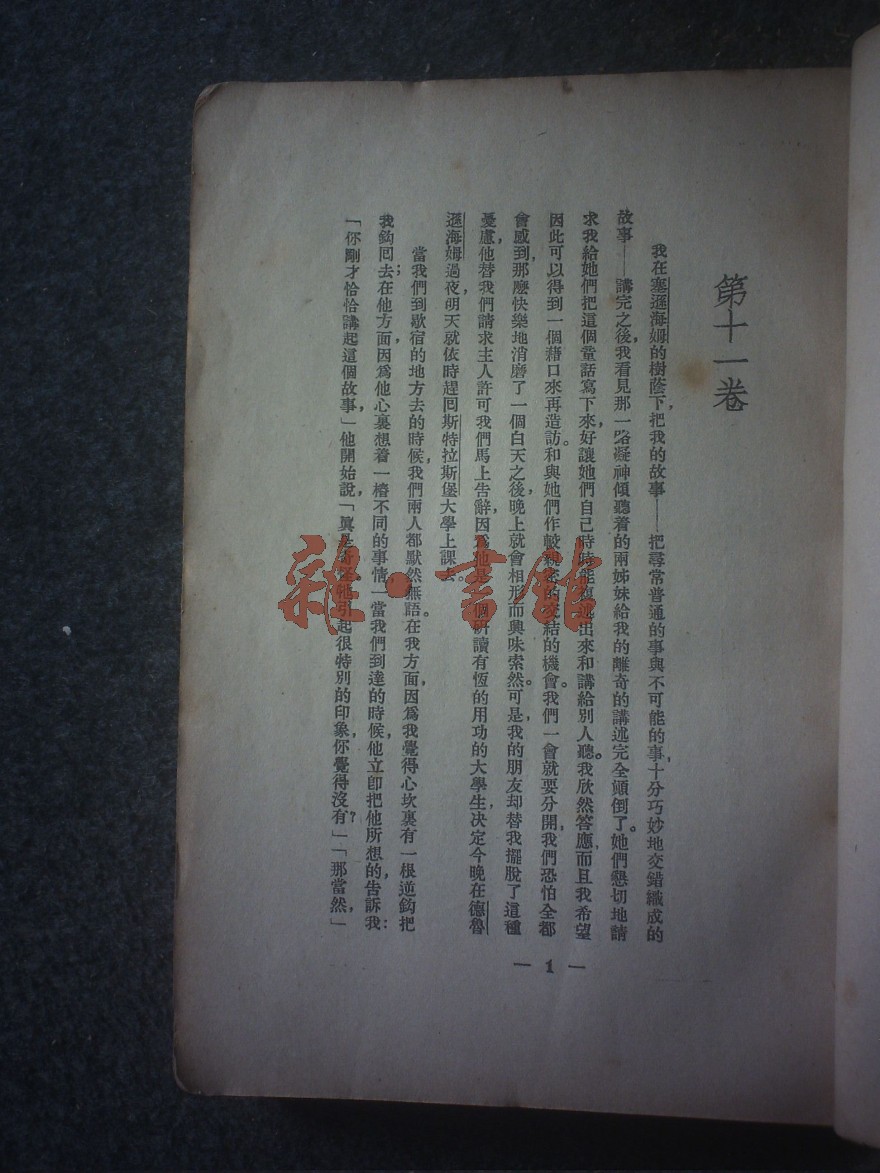 第十一卷
我在塞遜海姆的樹蔭下，把我的故事——把尋常普通的事與不可能的事，十分巧妙地交錯織成的
故事——講完之後，我看見那一路凝神傾聽着的兩姊妹給我的離奇的講述完全顚倒了。她們懇切地請
求我給她們把這個童話寫下來，好讓她們自己時時能複述出來和講給別人聽。我欣然答應，而且我希望
因此可以得到一個藉口來再造訪。和與她們作較親密的交結的機會。我們一會就要分開，我們恐怕全都
會感到，那麼快樂地消磨了一個白天之後，晚上就會相形而興味索然。可是，我的朋友却替我擺脫了這種
憂慮，他替我們請求主人許可我們馬上告辭，因爲他是一個研讀有恆的用功的大學生，决定今晚在德魯
遜海姆過夜，明天就依時趕囘斯特拉斯堡大學上課去。
當我們到歇宿的地方去的時候，我們兩人都默然無語。在我方面，因爲我覺得心坎裏有一根逆鈎把
我鈎囘去；在他方面，因爲他心裏想着一樁不同的事情，一當我們到達的時候，他立卽把他所想的告訴我：
「你剛才恰恰講起這個故事，」他開始說，「眞是奇怪，牠引起很特別的印象，你覺得沒有？」「那當然，」
— 1 —
雜·書館